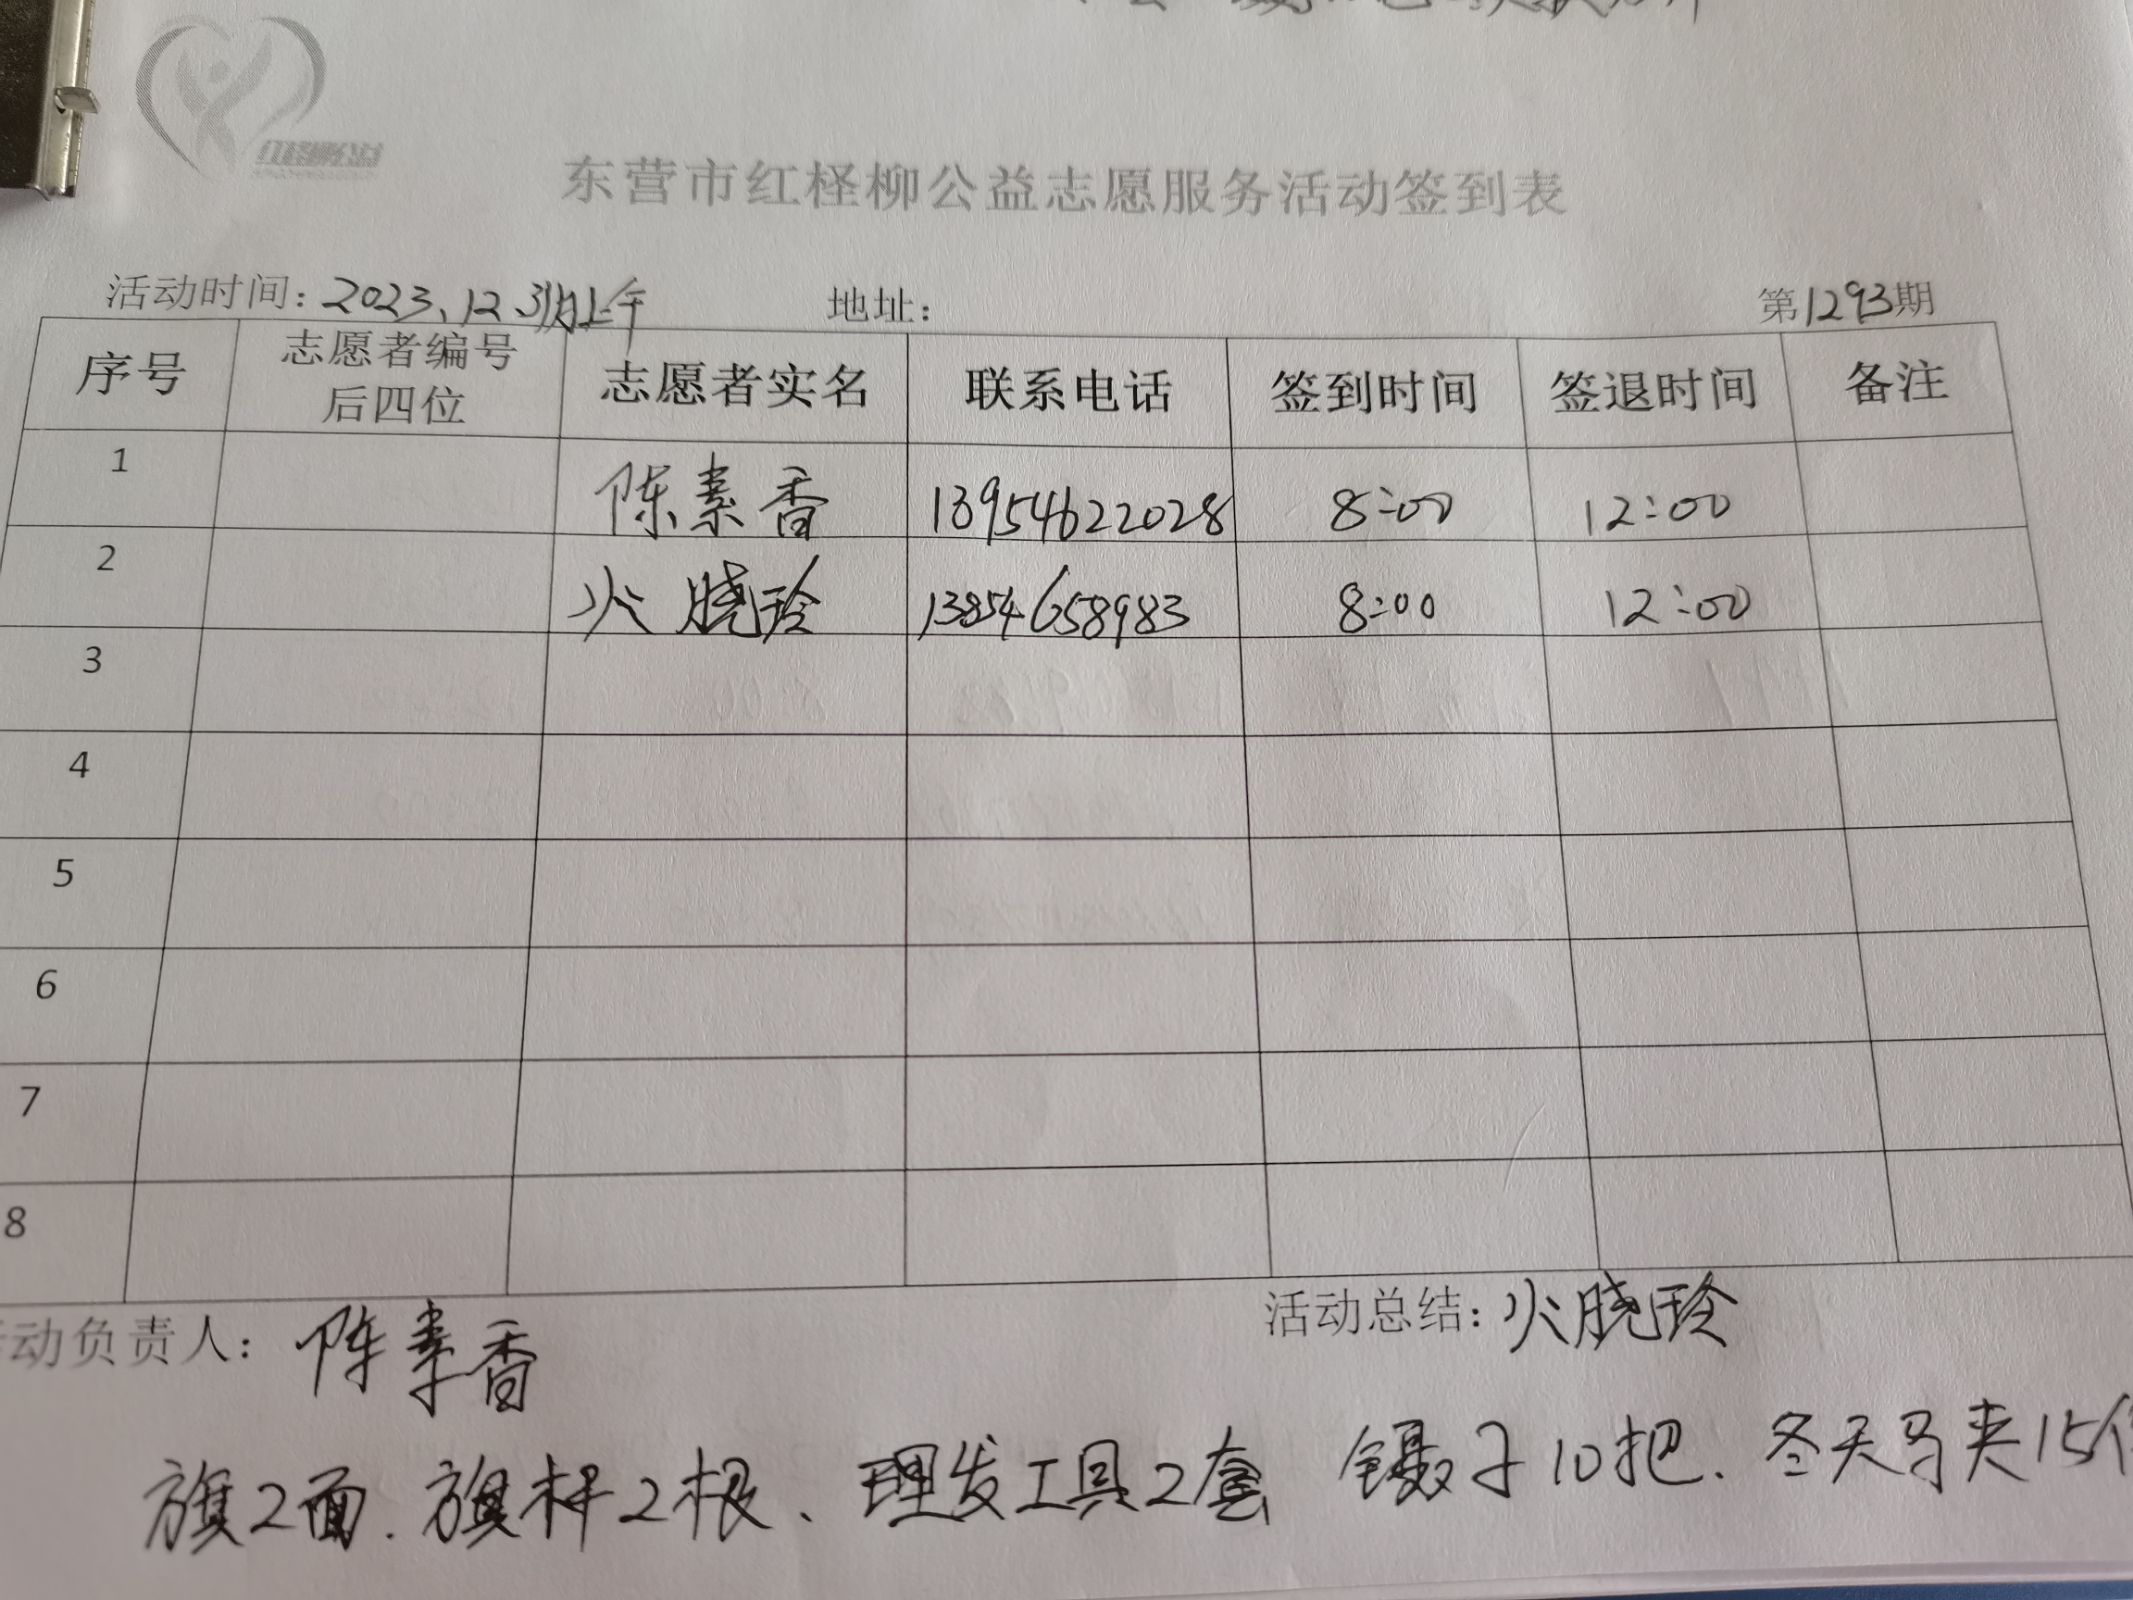 红柽柳公益
东营市红柽柳公益志愿服务活动签到表
活动时间：2023.12.31上午 地址： 第1293期
序号 志愿者编号后四位 志愿者实名 联系电话 签到时间 签退时间 备注
1 陈素香 13954622028 8:00 12:00
2 火晓玲 13854658983 8:00 12:00
3
4
5
6
7
8
动负责人：陈素香 活动总结：火晓玲
旗2面.旗杆2根、理发工具2套 镊子10把.冬天马夹15件